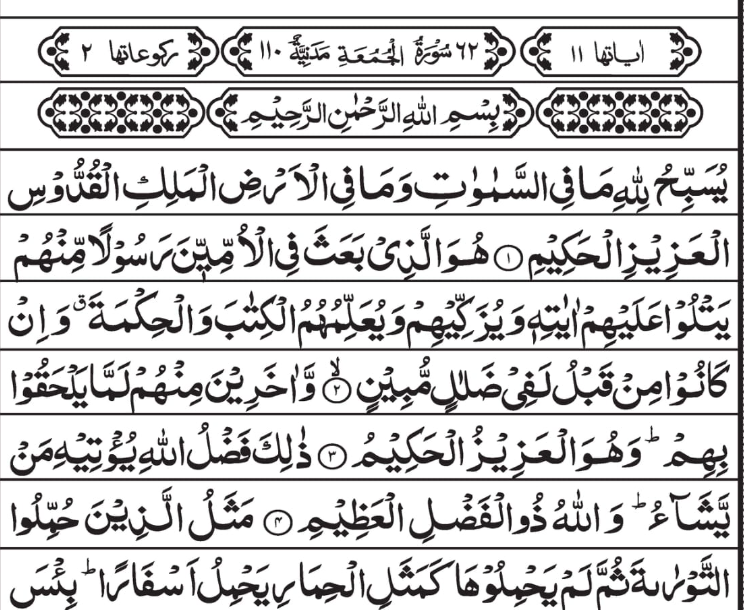 اٰیاتها ۱۱ ۶۲ سُوْرَةُ الْجُمُعَةِ مَدَنِیَّةٌ ۱۱۰ رکوعاتها ۲
بِسْمِ اللهِ الرَّحْمٰنِ الرَّحِیْمِ
یُسَبِّحُ لِلّٰهِ مَا فِی السَّمٰوٰتِ وَمَا فِی الْاَرْضِ الْمَلِكِ الْقُدُّوْسِ
الْعَزِیْزِ الْحَكِیْمِ ۝۱ هُوَ الَّذِیْ بَعَثَ فِی الْاُمِّیّٖنَ رَسُوْلًا مِّنْهُمْ
یَتْلُوْا عَلَیْهِمْ اٰیٰتِهٖ وَیُزَكِّیْهِمْ وَیُعَلِّمُهُمُ الْكِتٰبَ وَالْحِكْمَةَ ۗ وَاِنْ
كَانُوْا مِنْ قَبْلُ لَفِیْ ضَلٰلٍ مُّبِیْنٍ ۝۲ۙ وَّاٰخَرِیْنَ مِنْهُمْ لَمَّا یَلْحَقُوْا
بِهِمْ ؕ وَهُوَ الْعَزِیْزُ الْحَكِیْمُ ۝۳ ذٰلِكَ فَضْلُ اللهِ یُؤْتِیْهِ مَنْ
یَّشَآءُ ؕ وَاللهُ ذُو الْفَضْلِ الْعَظِیْمِ ۝۴ مَثَلُ الَّذِیْنَ حُمِّلُوا
التَّوْرٰىةَ ثُمَّ لَمْ یَحْمِلُوْهَا كَمَثَلِ الْحِمَارِ یَحْمِلُ اَسْفَارًا ؕ بِئْسَ